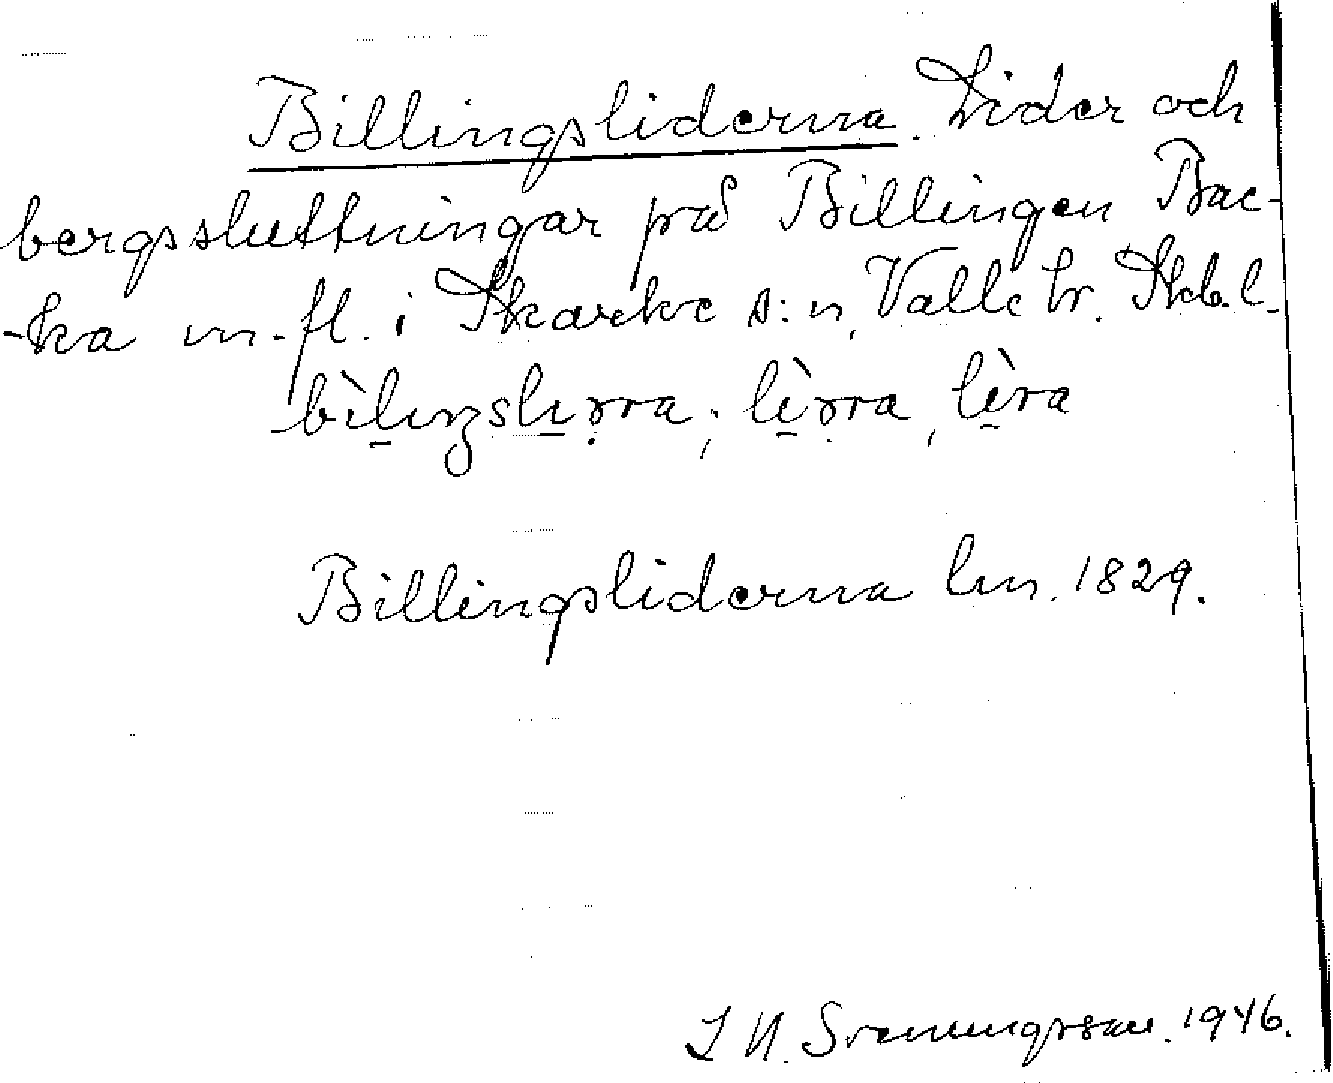 Billingsliderna. Lider och
bergssluttningar på Billingen Bac-
-ka m. fl. i Skarke s:n, Valle hr. Skb. l.
bìlıŋslıꞛra; lìꞛra, lìra
Billingsliderna lm. 1829.
J N. Svenungsson. 1946.